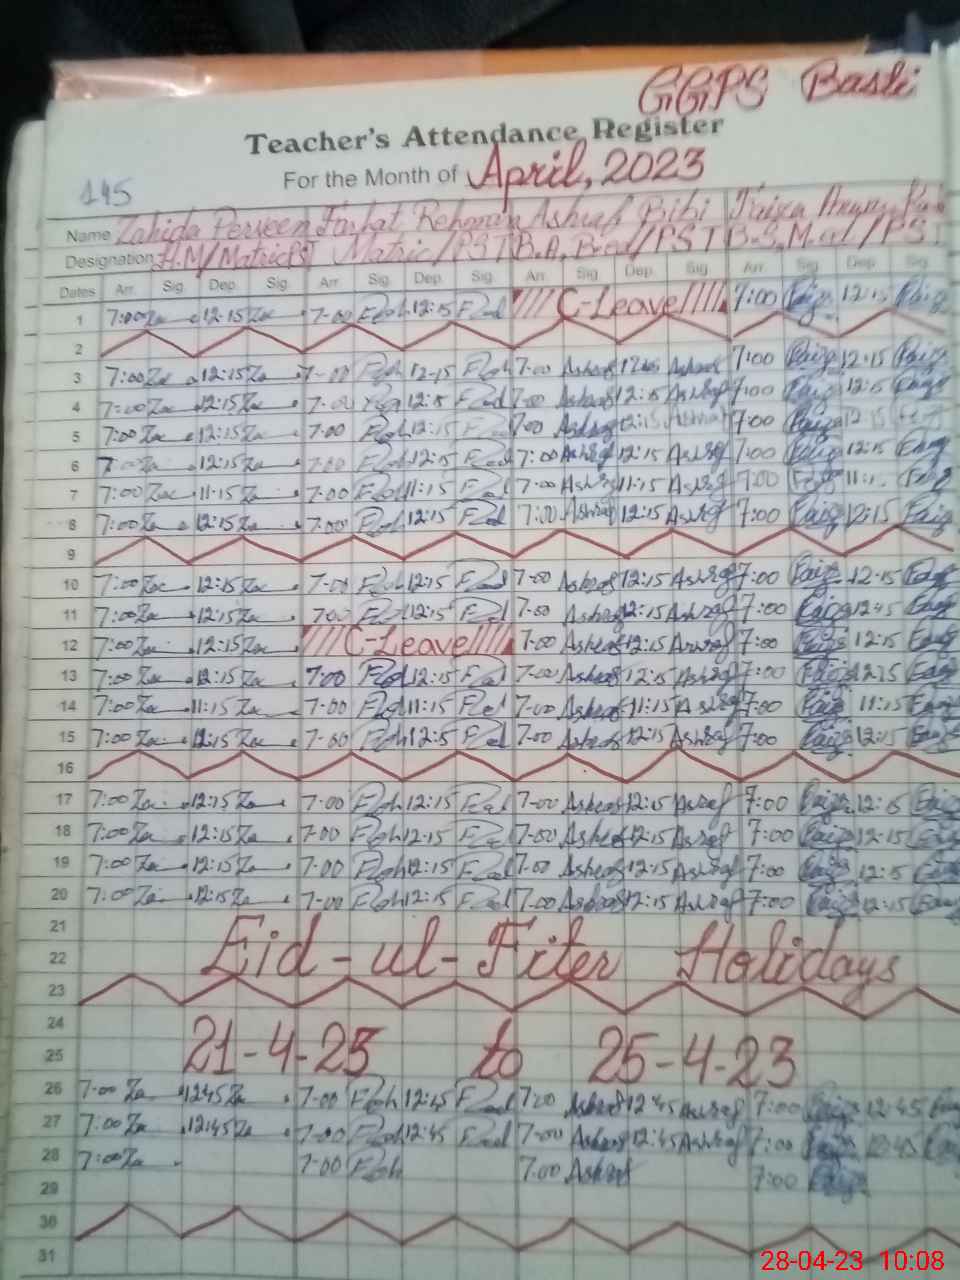 GGPS Basti
Teacher's Attendance Register
For the Month of April, 2023
195
Name Zahida Perveen Farhat Rehman Ashraf Bibi Faiza
Designation H.M/Matric PST Matric/PST B.A, B.ed/PST B.S, M.ed/PST
Dates Arr. Sig. Dep. Sig. Arr. Sig. Dep. Sig. Arr. Sig. Dep. Sig. Arr. Sig. Dep. Sig.
1 7:00 Za 12:15 Za 7-00 12:15 C-Leave 7:00 Faiz 12:15 Faiz
2
3 7:00 Za 12:15 Za 7-00 12-15 7-00 Ashraf Ashraf 7:00 Faiz 12:15 Faiz
4 7:00 Za 12:15 Za 7-00 12:15 7-00 Ashraf 12:15 Ashraf 7:00 Faiz 12:15 Faiz
5 7:00 Za 12:15 Za 7:00 12:15 7-00 Ashraf 12:15 Ashraf 7:00 Faiz 12:15
6 7:00 Za 12:15 Za 7:00 12:15 7:00 Ashraf 12:15 Ashraf 7:00 Faiz 12:15 Faiz
7 7:00 Za 11-15 Za 7-00 11:15 7-00 Ashraf 11:15 Ashraf 7:00 Faiz Faiz
8 7:00 Za 12:15 Za 7:00 12:15 7:00 Ashraf 12:15 Ashraf 7:00 Faiz 12:15 Faiz
9
10 7:00 Za 12:15 Za 7-00 12:15 7-00 Ashraf 12:15 Ashraf 7:00 Faiz 12-15 Faiz
11 7:00 Za 12:15 Za 7:00 12:15 7-00 Ashraf 12:15 Ashraf 7:00 Faiz 1245 Faiz
12 7:00 Za 12:15 Za C-Leave 7-00 Ashraf 12:15 Ashraf 7:00 Faiz 12:15 Faiz
13 7:00 Za 12:15 Za 7:00 12:15 7-00 Ashraf 12:15 Ashraf 7:00 Faiz 12:15 Faiz
14 7:00 Za 11:15 Za 7-00 11:15 7-00 Ashraf 11:15 Ashraf 7:00 Faiz 11:15 Faiz
15 7:00 Za 12:15 Za 7-00 12:15 7-00 Ashraf 12:15 Ashraf 7:00 Faiz 12:15 Faiz
16
17 7:00 Za 12:15 Za 7-00 12:15 7-00 Ashraf 12:15 Ashraf 7:00 Faiz 12:15 Faiz
18 7:00 Za 12:15 Za 7-00 12-15 7-00 Ashraf 12:15 Ashraf 7:00 Faiz 12:15 Faiz
19 7:00 Za 12:15 Za 7-00 12:15 7-00 Ashraf 12:15 Ashraf 7:00 Faiz 12:15 Faiz
20 7:00 Za 12:15 Za 7-00 12:15 7-00 Ashraf 12:15 Ashraf 7:00 Faiz 12:15 Faiz
21
22 Eid-ul-Fiter Holidays
23
24
25 21-4-23 to 25-4-23
26 7-00 Za 1245 Za 7-00 12:45 7:00 Ashraf 12:45 Ashraf 7:00 Faiz 12:45 Faiz
27 7:00 Za 12:45 Za 7-00 12:45 7-00 Ashraf 12:45 Ashraf 7:00 Faiz 12:45 Faiz
28 7:00 Za 7:00 7.00 Ashraf 7:00 Faiz
29
30
31
28-04-23 10:08